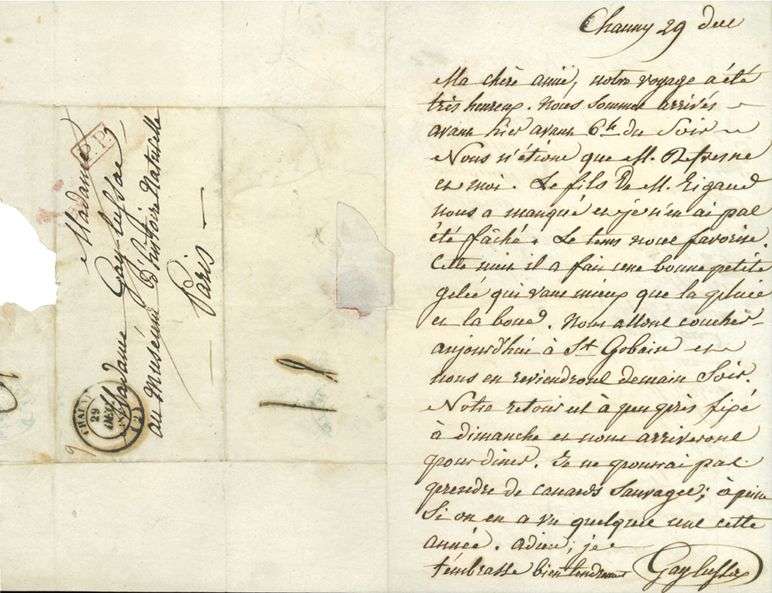 Madame
Madame Gay-Lussac
au Museum d'histoire Naturelle
Paris
CHAUNY
29
(2)
Chauny 29 dec
Ma chère amie, notre voyage a été
très heureux. Nous sommes arrivés
avant hier avant 6h du Soir
Nous n'étions que M.
et moi. Le fils de M. Rigaud
nous a manqué et je n'en ai pas
été fâché. Le tems nous favorise.
Cette nuit il a fait une bonne petite
gelée qui vaut mieux que la pluie
et la boue. Nous allons coucher
aujourd'hui à St Gobain et
nous en reviendrons demain Soir.
Notre retour est à peu près fixé
à dimanche et nous arriverons
pour diner. Je ne pourrai pas
prendre de canards Sauvages; à peine
Si on en a vu quelques uns cette
année. adieu; je
t'embrasse bien tendrement Gay-Lussac